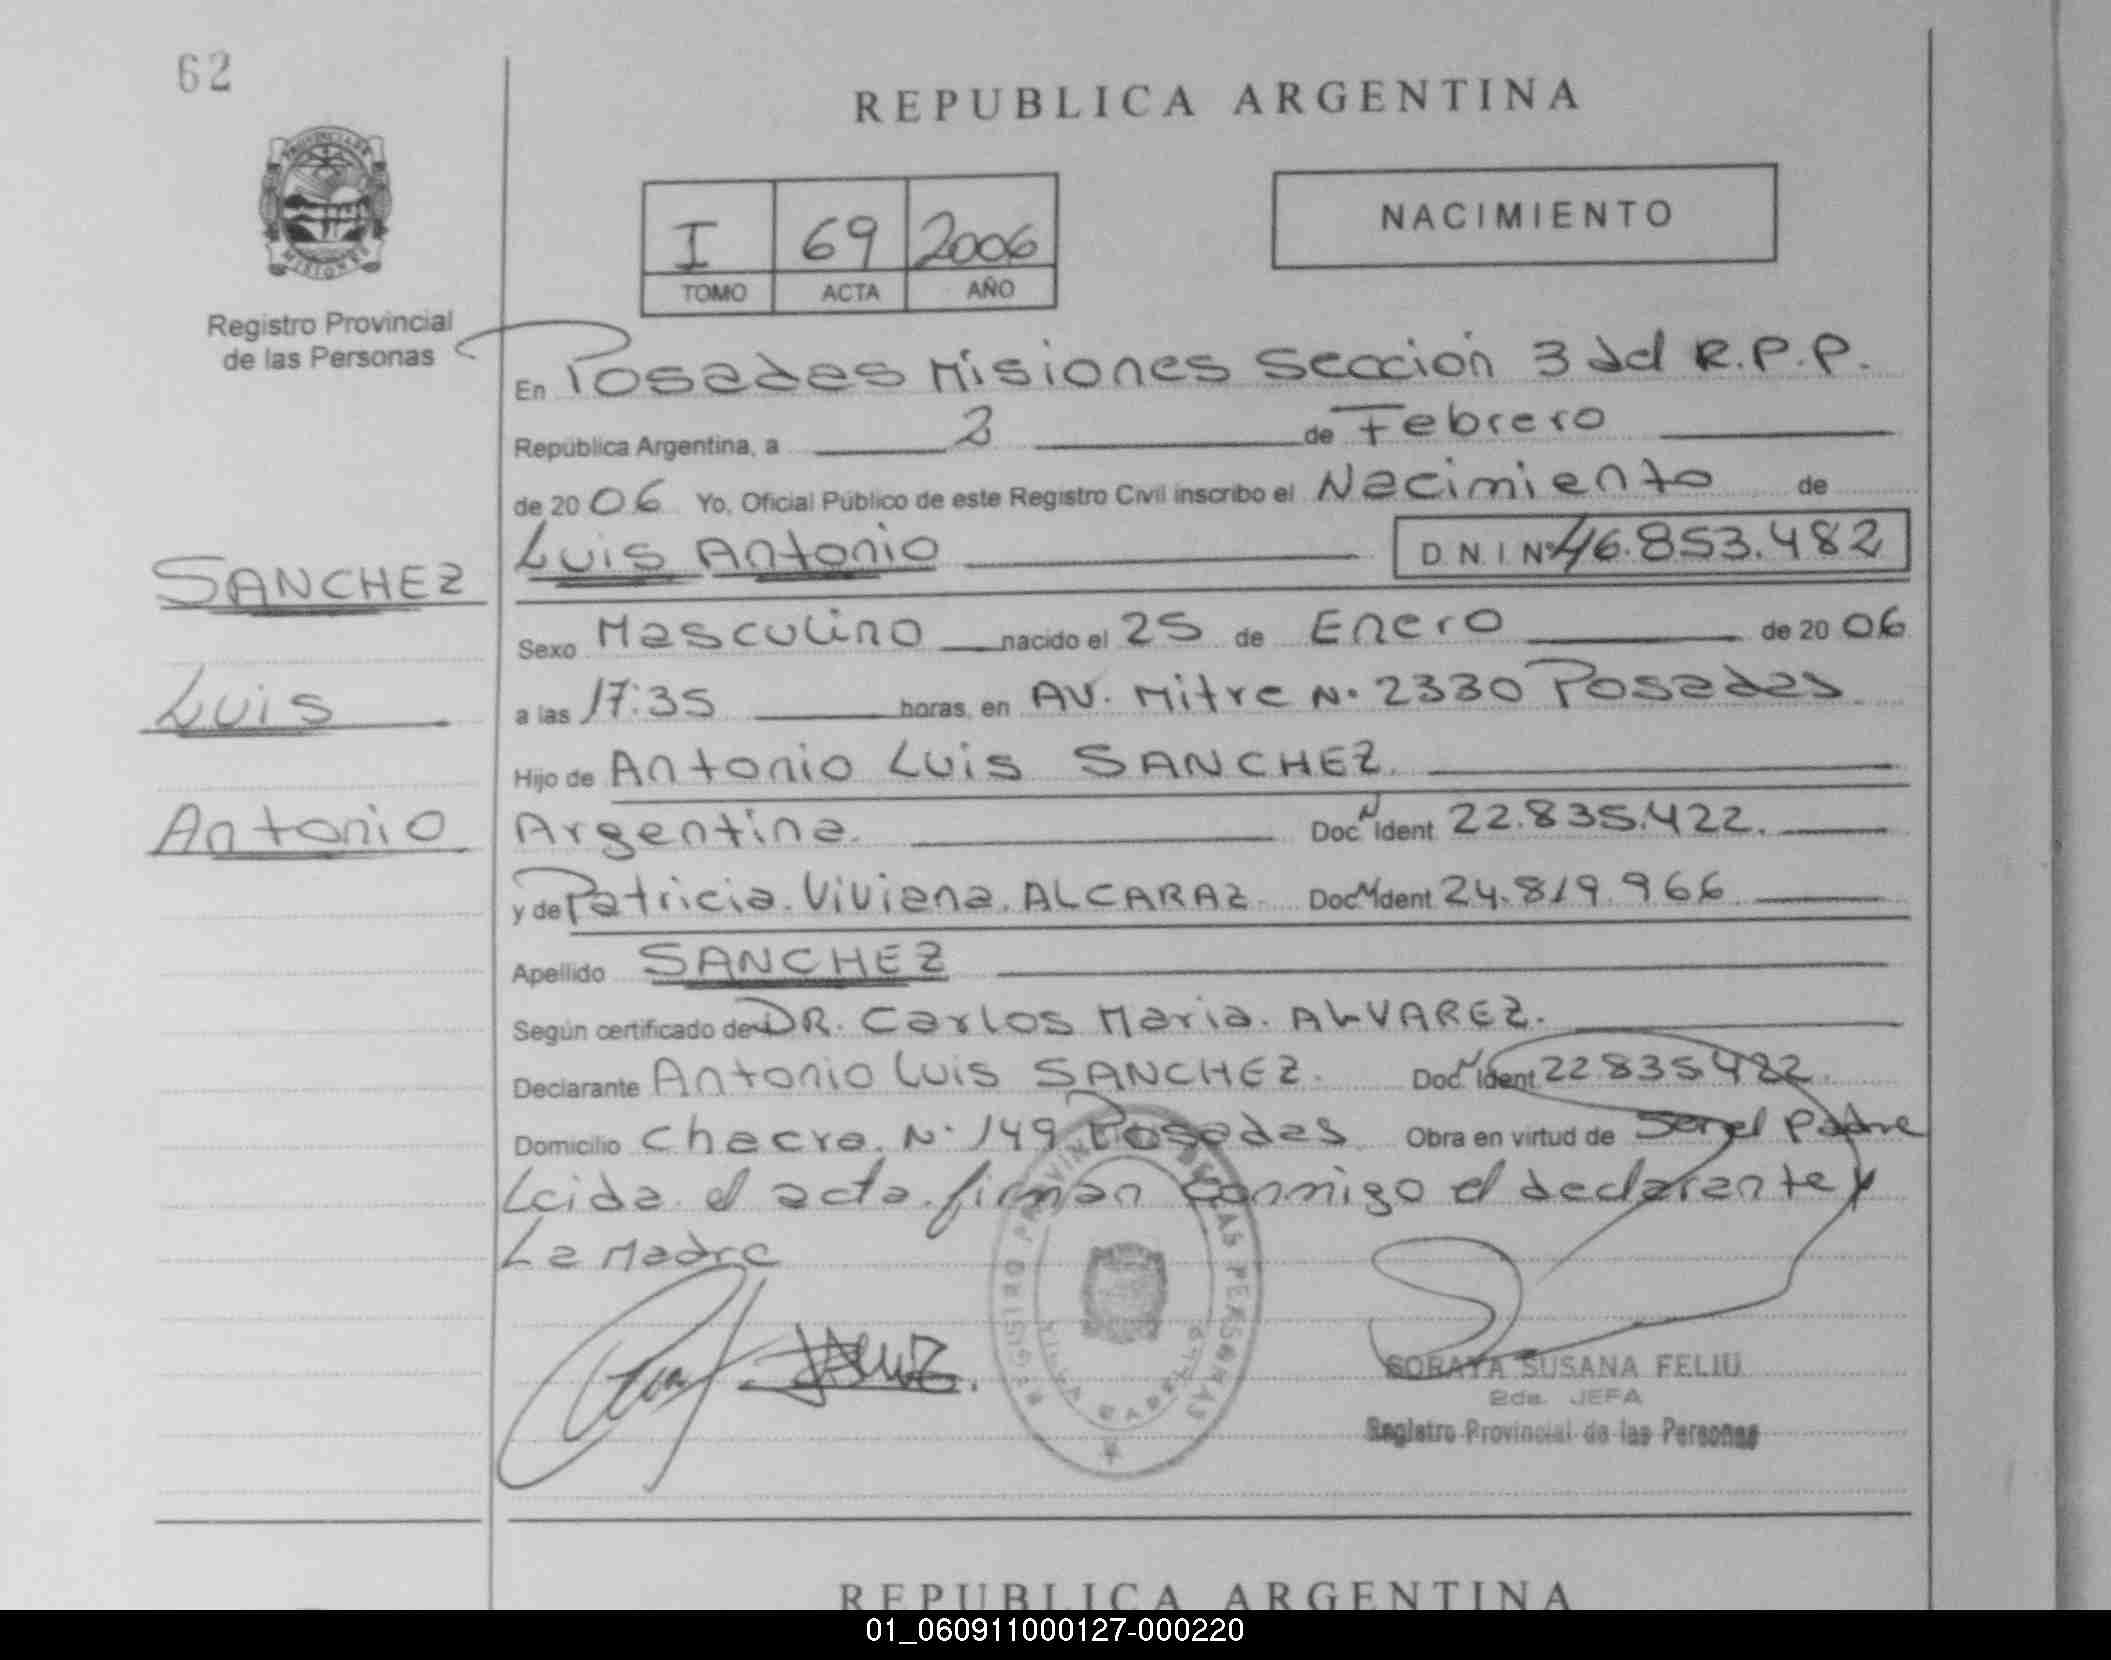 62
REPUBLICA ARGENTINA
PROVINCIA DE
MISIONES
Registro Provincial
de las Personas
I 69 2006
TOMO ACTA AÑO
NACIMIENTO
En Posadas Misiones Sección 3 del R.P.P.
República Argentina, a 2 de Febrero
de 2006 Yo, Oficial Público de este Registro Civil inscribo el Nacimiento de
Luis Antonio D.N.I. Nº 46.853.482
SANCHEZ
Luis
Antonio
Sexo Masculino nacido el 25 de Enero de 2006
a las 17:35 horas, en AV. Mitre Nº 2330 Posadas
Hijo de Antonio Luis SANCHEZ.
Argentina. Doc. N Ident 22.835.422.
y de Patricia Viviana ALCARAZ. Doc. N Ident 24.819.966
Apellido SANCHEZ
Según certificado de DR. Carlos Maria ALVAREZ.
Declarante Antonio Luis SANCHEZ. Doc. N Ident 22835422.
Domicilio Chacra Nº 149 Posadas Obra en virtud de Ser el Padre
Leida el acta firman conmigo el declarante y
La Madre
REGISTRO PROVINCIAL DE LAS PERSONAS
SORAYA SUSANA FELIU
2da. JEFA
Registro Provincial de las Personas
REPUBLICA ARGENTINA
01_060911000127-000220